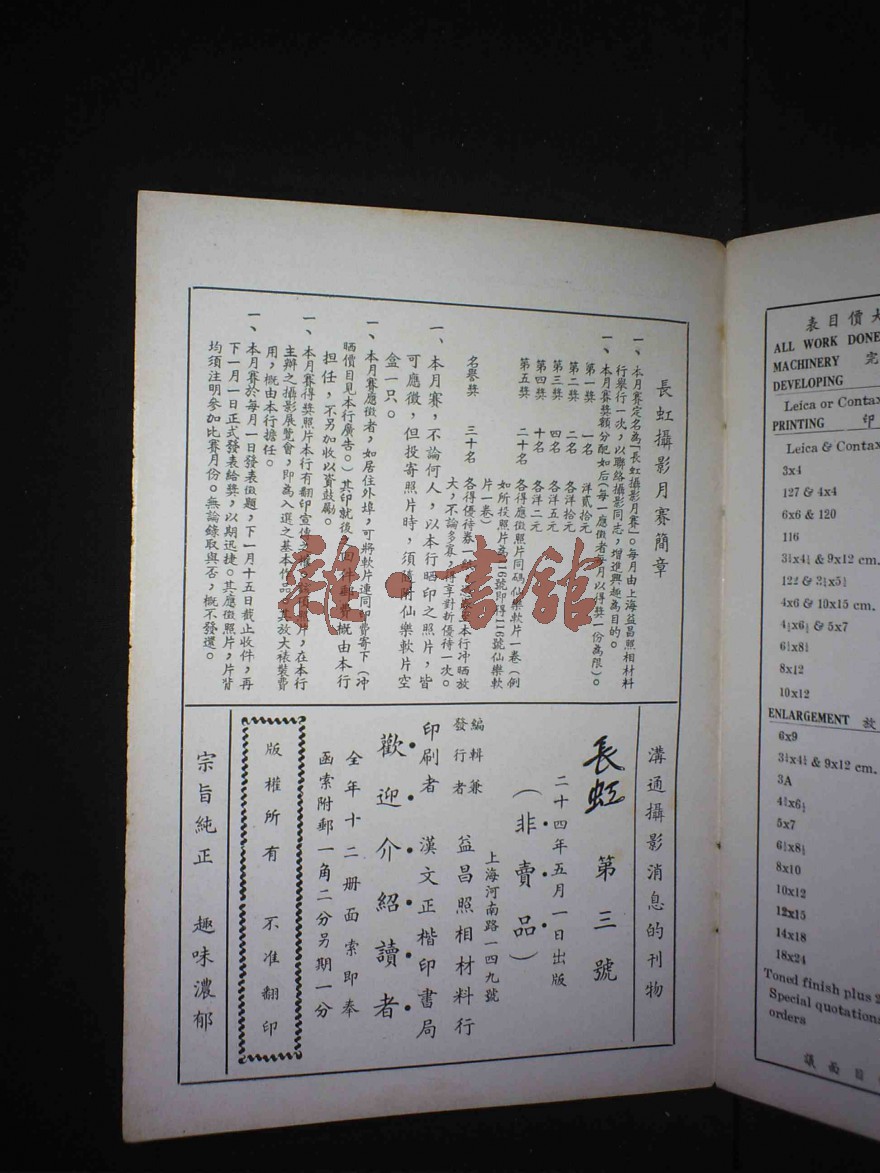 長虹攝影月賽簡章
一、本月賽定名為「長虹攝影月賽」。每月由上海益昌照相材料
行舉行一次，以聯絡攝影同志，增進興趣為目的。
一、本月賽獎額分配如后(每一應徵者每月以得獎一份為限)。
第一獎 一名 洋貳拾元
第二獎 二名 各洋拾元
第三獎 四名 各洋五元
第四獎 十名 各洋二元
第五獎 二十名 各得應徵照片同碼仙樂軟片一卷(例
如所投照片為116號即得116號仙樂軟
片一卷)
名譽獎 三十名 各得優待券一
本行冲晒放
大，不論多寡，得享對折優待一次。
一、本月賽，不論何人，以本行晒印之照片，皆
可應徵，但投寄照片時，須隨附仙樂軟片空
盒一只。
一、本月賽應徵者，如居住外埠，可將軟片連同郵費寄下(冲
晒價目見本行廣告。)其印就後，回件郵費概由本行
担任，不另加收以資鼓勵。
一、本月賽得獎照片本行有翻印宣傳之
照片，在本行
主辦之攝影展覽會，即為入選之基本作品，其放大裱裝費
用，概由本行擔任。
一、本月賽於每月一日發表徵題，下一月十五日截止收件，再
下一月一日正式發表給獎，以期迅捷。其應徵照片，片背
均須注明參加比賽月份。無論錄取與否，概不發還。
溝通攝影消息的刊物
長虹 第三號
二十四年五月一日出版
(非賣品)
上海河南路一四九號
編輯兼
發行者 益昌照相材料行
印刷者 漢文正楷印書局
歡迎介紹讀者
全年十二册面索即奉
函索附郵一角二分另期一分
版權所有 不准翻印
宗旨純正 趣味濃郁
雜·書館
大價目表
ALL WORK DONE
MACHINERY 完
DEVELOPING
Leica or Contax
PRINTING 印
Leica & Contax
3x4
127 & 4x4
6x6 & 120
116
3¼x4¼ & 9x12 cm.
122 & 3½x5½
4x6 & 10x15 cm.
4¾x6½ & 5x7
6½x8½
8x12
10x12
ENLARGEMENT 放
6x9
3¼x4¼ & 9x12 cm.
3A
4¾x6½
5x7
6½x8½
8x10
10x12
12x15
14x18
18x24
Toned finish plus 2
Special quotations
orders
目面議